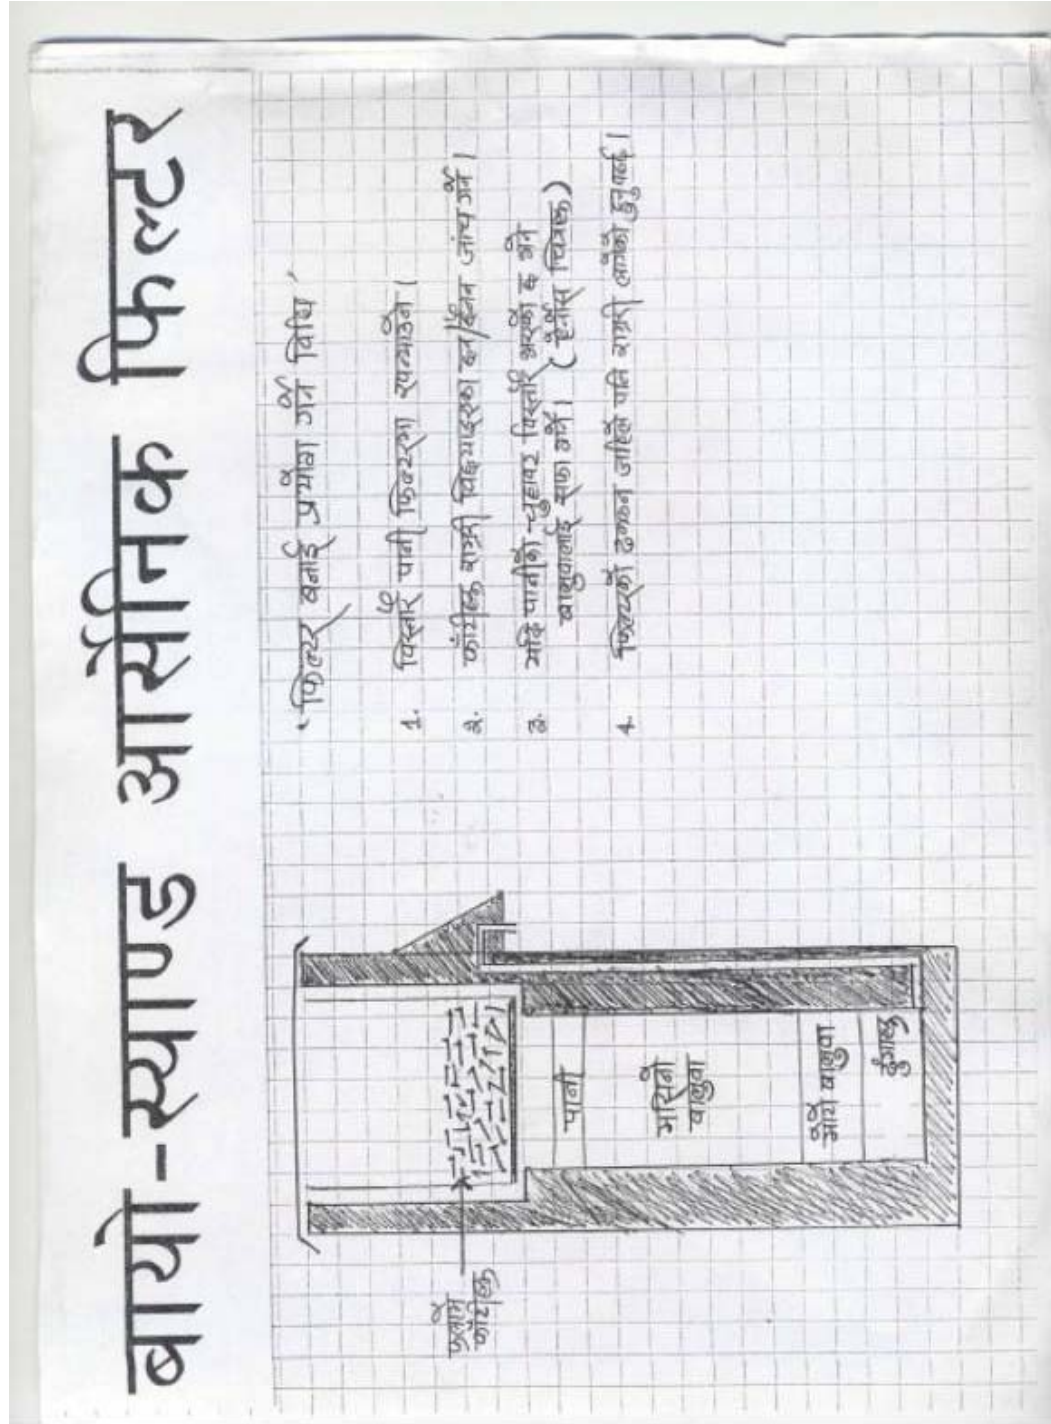 बायो-स्याण्ड आर्सेनिक फिल्टर
"फिल्टर बनाई प्रयोग गर्ने विधि"
1. विस्तारै पानी फिल्टरमा खन्याउने।
२. काँटीहरू राम्ररी मिलाइएका छन्/छैनन् जाँच गर्ने।
३. यदि पानीको विस्तारै भएको छ भने
बालुवालाई सफा गर्ने। (हेर्नोस्
4. फिल्टरको ढक्कन जहिले पनि राम्ररी लागेको हुनुपर्छ।
फलामे
काँटीहरू
पानी
मसिनो
बालुवा
बालुवा